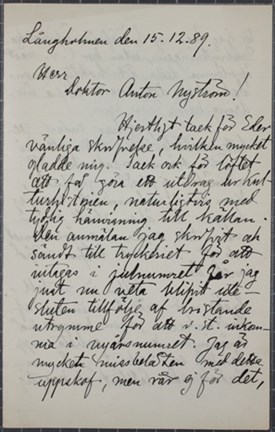 Långholmen den 15.12.89.
Herr
Doktor Anton Nyström!
Hjertligt tack för Eder
vänliga skrifvelse, hvilken mycket
gladde mig. Tack ock för löftet
att få göra ett utdrag ur Kul-
turhistorien, naturligtvis med
tydlig hänvisning till källan.
Den anmälan jag skrifvit och
sändt till tryckeriet för att
intagas i julnumret har jag
just nu veta blifvit ute-
sluten till följe af bristande
utrymme för att i st. inkom-
ma i nyårsnumret. Jag är
mycket missbelåten med detta
uppskof, men rår ej för det,